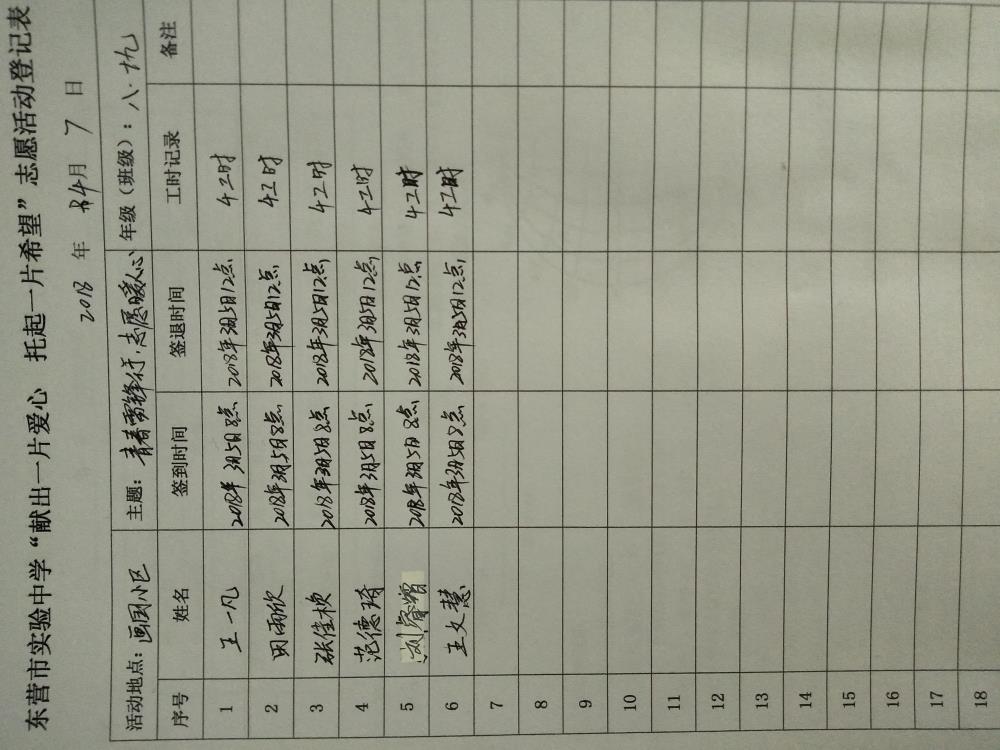 东营市实验中学“献出一片爱心 托起一片希望”志愿活动登记表
2018 年 4月 7 日
活动地点：画园小区 主题：青春雷锋行，志愿暖人心 年级（班级）：八·十九
序号 姓名 签到时间 签退时间 工时记录 备注
1 王一凡 2018年3月5日8点 2018年3月5日12点 4工时
2 田雨欣 2018年3月5日8点 2018年3月5日12点 4工时
3 张佳桢 2018年3月5日8点 2018年3月5日12点 4工时
4 范德琦 2018年3月5日8点 2018年3月5日12点 4工时
5 刘睿智 2018年3月5日8点 2018年3月5日12点 4工时
6 王文慧 2018年3月5日8点 2018年3月5日12点 4工时
7
8
9
10
11
12
13
14
15
16
17
18